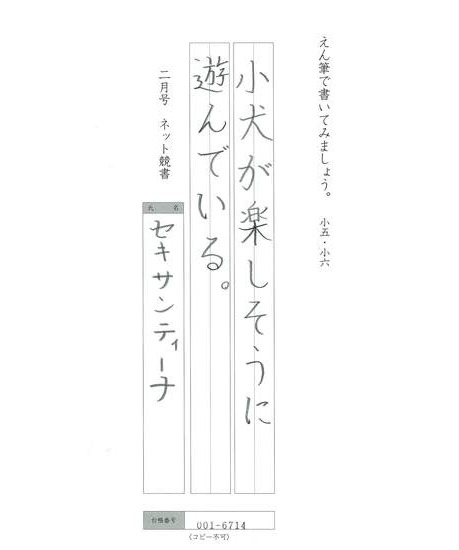 えん筆で書いてみましょう。 小五・小六
小犬が楽しそうに
遊んでいる。
二月号 ネット競書
氏名
セキサンティーナ
台帳番号 001-6714
(コピー不可)